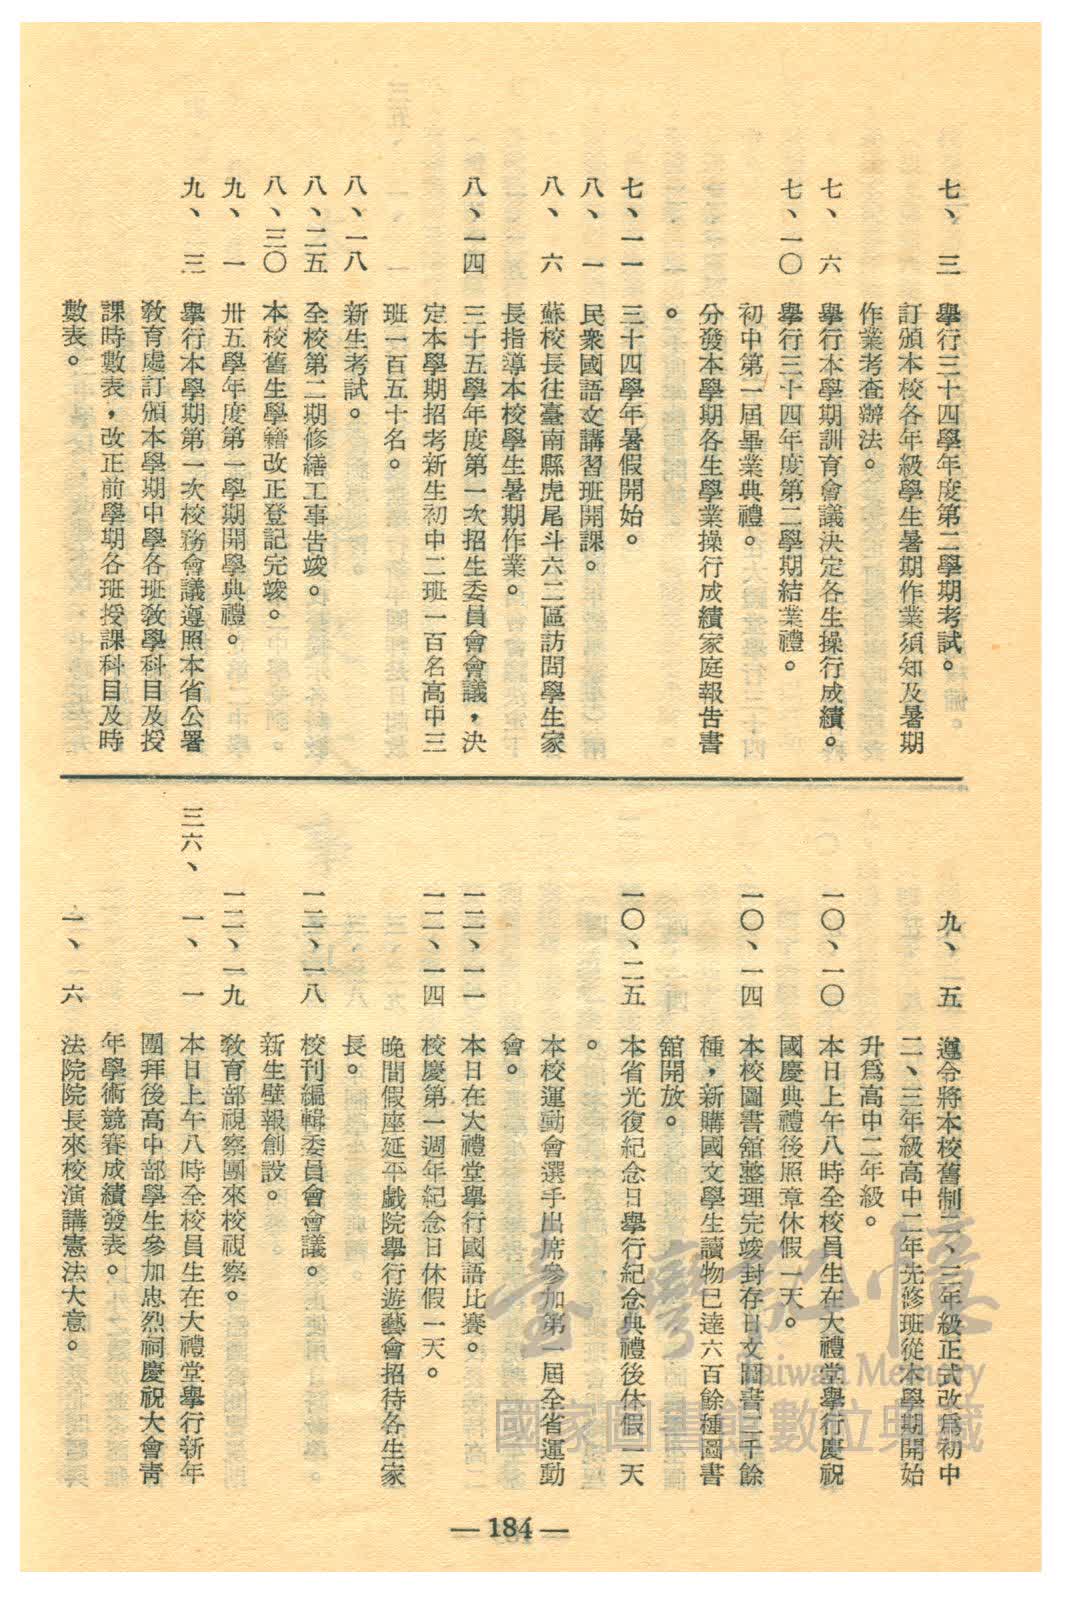 七、三　舉行三十四學年度第二學期考試。
訂頒本校各年級學生暑期作業須知及暑期
作業考查辦法。
七、六　舉行本學期訓育會議決定各生操行成績。
七、一〇　舉行三十四年度第二學期結業禮。
初中第一屆畢業典禮。
分發本學期各生學業操行成績家庭報告書
。
七、一一　三十四學年暑假開始。
八、一　民衆國語文講習班開課。
八、六　蘇校長往臺南縣虎尾斗六二區訪問學生家
長指導本校學生暑期作業。
八、一四　三十五學年度第一次招生委員會會議，決
定本學期招考新生初中二班一百名高中三
班一百五十名。
八、一八　新生考試。
八、二五　全校第二期修繕工事告竣。
八、三〇　本校舊生學籍改正登記完竣。
九、一　卅五學年度第一學期開學典禮。
九、三　舉行本學期第一次校務會議遵照本省公署
敎育處訂頒本學期中學各班敎學科目及授
課時數表，改正前學期各班授課科目及時
數表。
九、一五　遵令將本校舊制二、三年級正式改爲初中
二、三年級高中二年先修班從本學期開始
升爲高中二年級。
一〇、一〇　本日上午八時全校員生在大禮堂舉行慶祝
國慶典禮後照章休假一天。
一〇、一四　本校圖書舘整理完竣封存日文圖書二千餘
種，新購國文學生讀物已達六百餘種圖書
舘開放。
一〇、二五　本省光復紀念日舉行紀念典禮後休假一天
。
本校運動會選手出席參加第一屆全省運動
會。
一二、一一　本日在大禮堂舉行國語比賽。
一二、一四　校慶第一週年紀念日休假一天。
晚間假座延平戲院舉行遊藝會招待各生家
長。
一二、一八　校刊編輯委員會會議。
新生壁報創設。
一二、一九　敎育部視察團來校視察。
三六、一、一　本日上午八時全校員生在大禮堂舉行新年
團拜後高中部學生參加忠烈祠慶祝大會青
年學術競賽成績發表。
一、一六　法院院長來校演講憲法大意。
— 184 —
臺灣記憶
Taiwan Memory
國家圖書館數位典藏